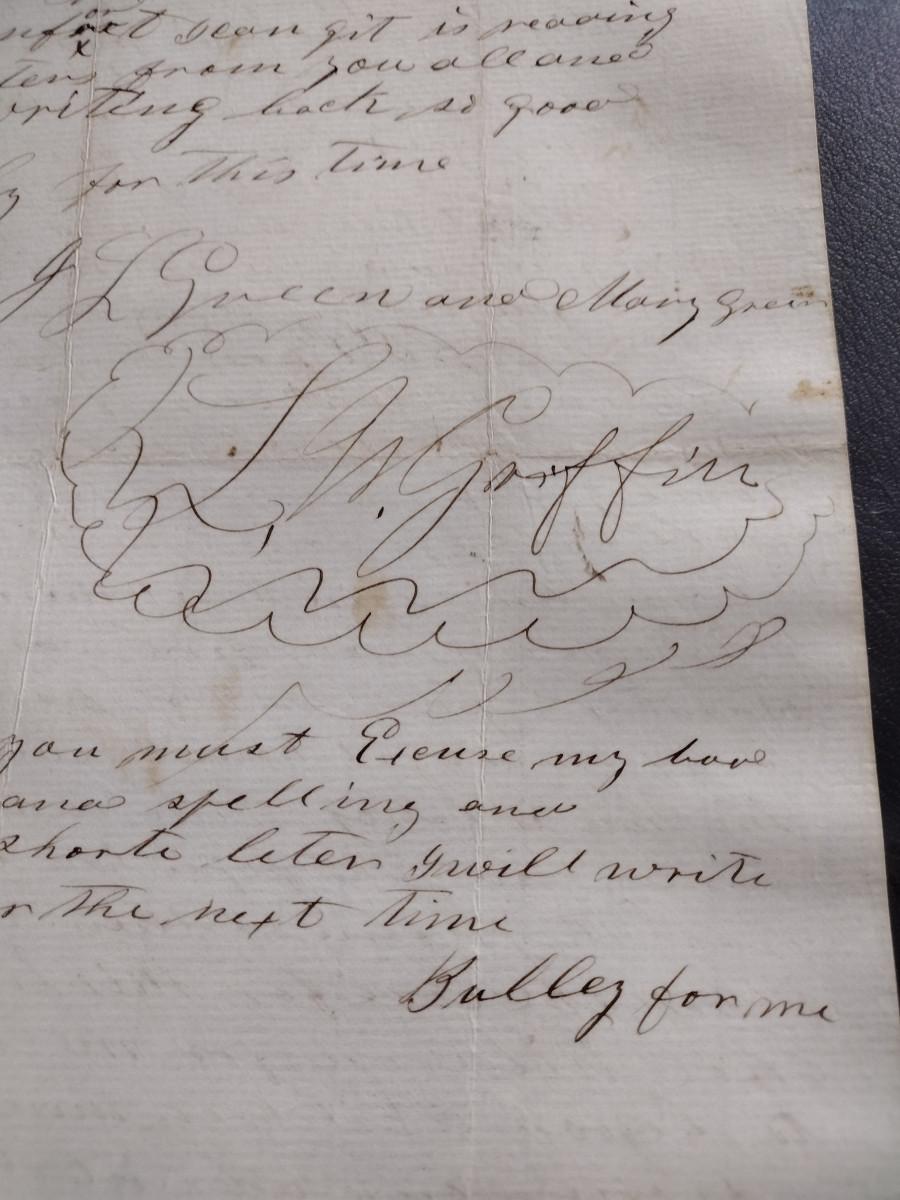 nfort I can git is reading
ters from you all and
writing back so good
y for this time
J L Green and Mary green
L, W. Griffin
you must Excuse my bad
and spelling and
shorte leter I will write
r the next time
Bulley for me